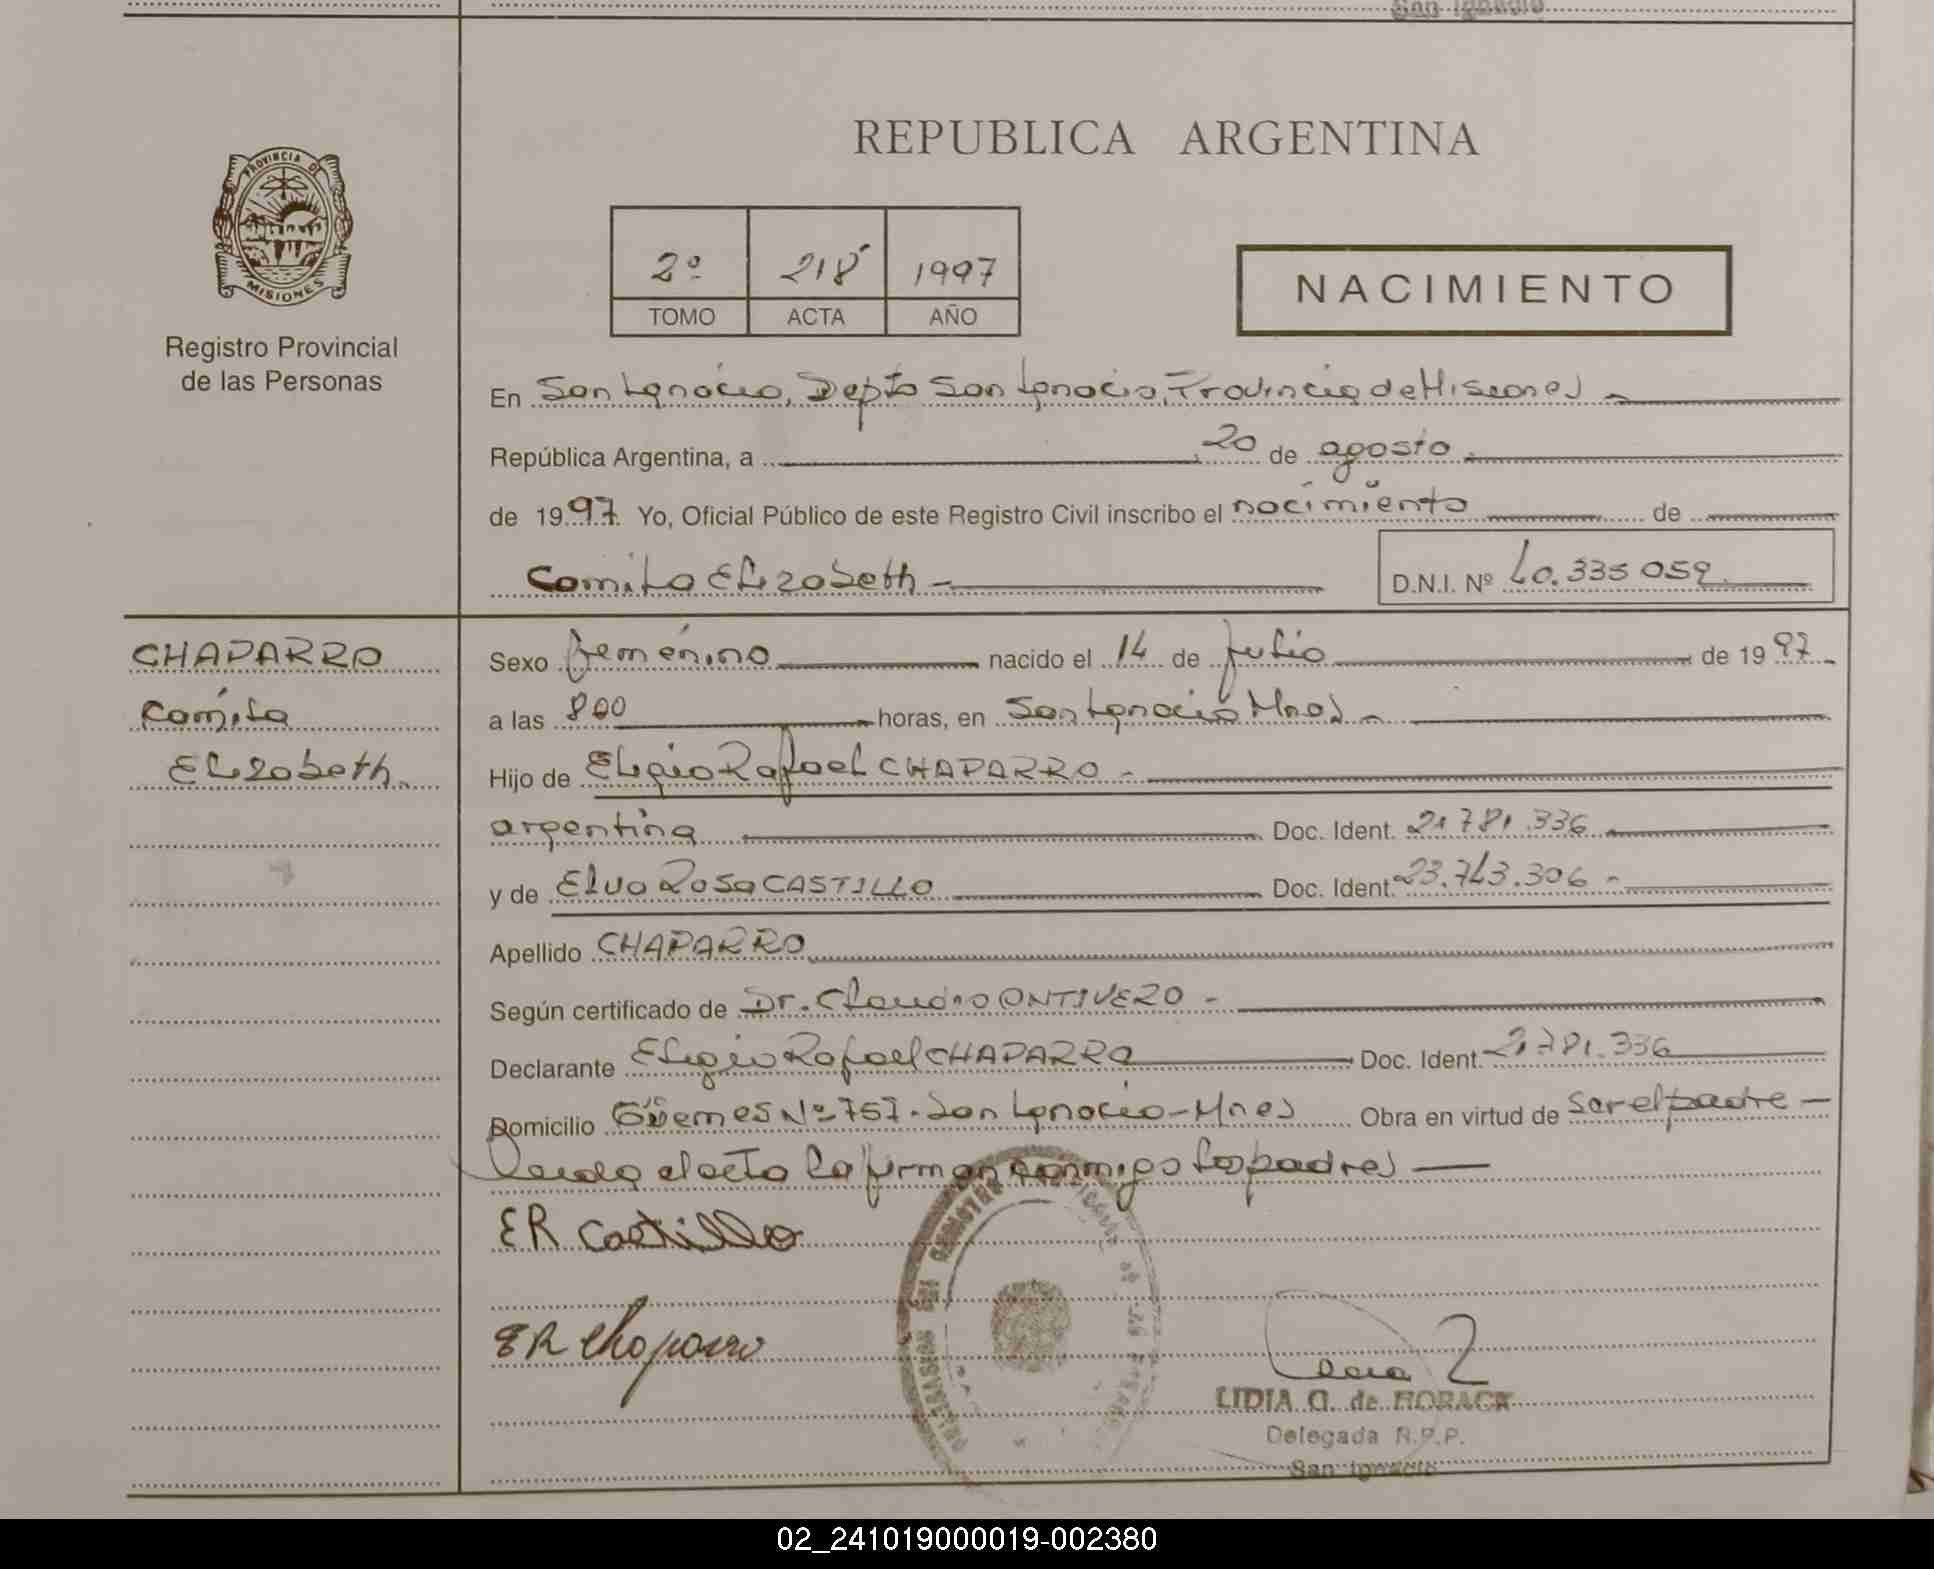 San Ignacio
PROVINCIA DE
MISIONES
Registro Provincial
de las Personas
REPUBLICA ARGENTINA
2º 218 1997
TOMO ACTA AÑO
NACIMIENTO
En San Ignacio, Depto San Ignacio, Provincia de Misiones
República Argentina, a 20 de agosto
de 1997 Yo, Oficial Público de este Registro Civil inscribo el nacimiento de
Camila Elizabeth D.N.I. Nº 40.335 059
CHAPARRO
Camila
Elizabeth
Sexo femenino nacido el 14 de julio de 1997
a las 800 horas, en San Ignacio Mnes
Hijo de Eligio Rafael CHAPARRO
argentina Doc. Ident. 21.781.336
y de Elva Rosa CASTILLO Doc. Ident. 23.743.306
Apellido CHAPARRO
Según certificado de Dr. Claudio ONTIVERO
Declarante Eligio Rafael CHAPARRO Doc. Ident. 21.781.336
Domicilio Güemes Nº 757. San Ignacio - Mnes Obra en virtud de ser el padre
Leida el acta la firman conmigo los padres
ER Castillo
ER Chaparro
LIDIA G. de HORACK
Delegada R.P.P.
San Ignacio
02_241019000019-002380